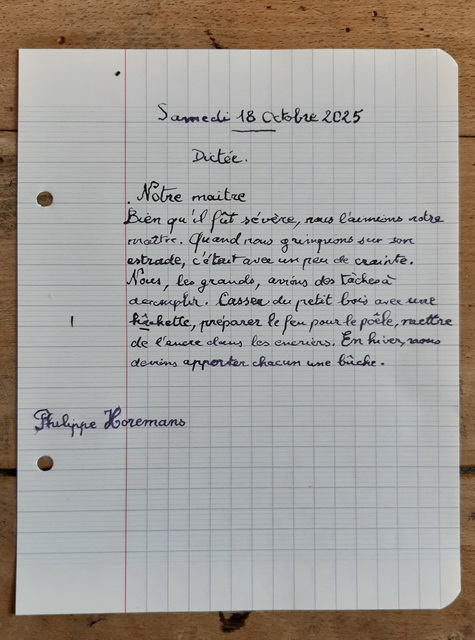 Samedi 18 Octobre 2025
Dictée.
Notre maitre
Bien qu'il fût sévère, nous l'aimions notre
maître. Quand nous grimpions sur son
estrade, c'était avec un peu de crainte.
Nous, les grands, avions des tâches à
accomplir. Casser du petit bois avec une
1 hâchette, préparer le feu pour le poêle, mettre
de l'encre dans les encriers. En hiver, nous
devions apporter chacun une bûche.
Philippe Horemans